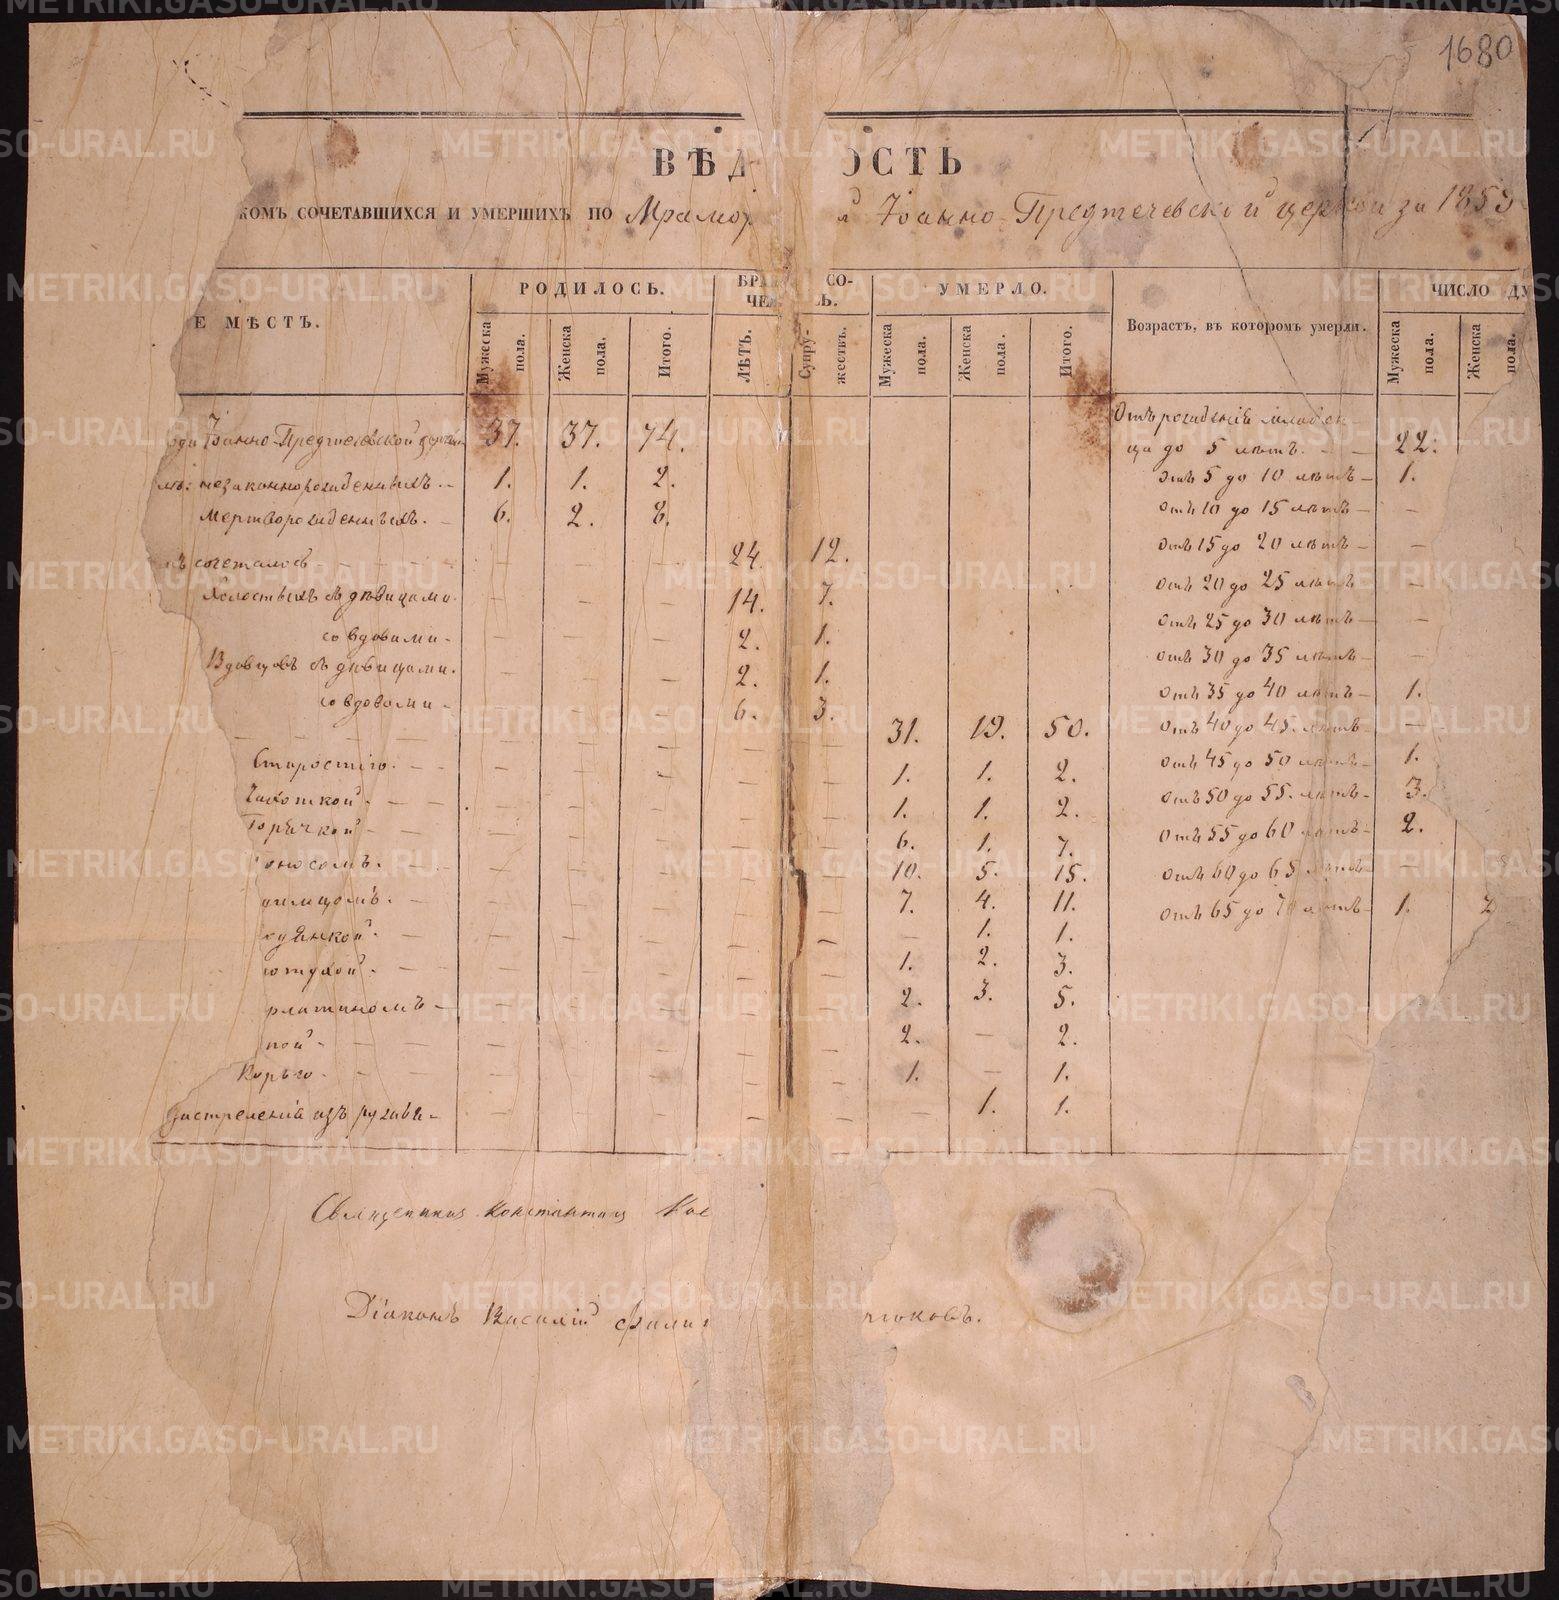 1680
ВѢД ОСТЬ
КОМЪ СОЧЕТАВШИХСЯ И УМЕРШИХЪ ПО Мрамор й Іоанно-Предтечевской церкви за 185
Е МѢСТЪ. РОДИЛОСЬ. БРА СО- УМЕРЛО. Возрастъ, въ которомъ умерли. ЧИСЛО ДУ
ЧЕ Ь.
Мужеска пола. Женска пола. Итого. ЛѢТЪ. Супру- жествъ. Мужеска пола. Женска пола. Итого. Мужеска пола. Женска пола.
Іоанно-Предтечевской церкви 37. 37. 74. Отъ рожденія младен-
ца до 5 лѣтъ. - - 22.
незаконнорожденныхъ. - 1. 1. 2. Отъ 5 до 10 лѣтъ - 1.
Мертворожденныхъ. - 6. 2. 8. Отъ 10 до 15 лѣтъ - -
ъ сочеталось - - - - - 24. 12. Отъ 15 до 20 лѣтъ - -
Холостыхъ съ дѣвицами. - - - 14. 7. Отъ 20 до 25 лѣтъ -
со вдовами - - - - 2. 1. Отъ 25 до 30 лѣтъ - -
Вдовцовъ съ дѣвицами. - - - 2. 1. Отъ 30 до 35 лѣтъ - -
со вдовами - - - - 6. 3. Отъ 35 до 40 лѣтъ - 1.
- - - - - - - - 31. 19. 50. Отъ 40 до 45. лѣтъ - -
Старостію. - - - - - - - 1. 1. 2. Отъ 45 до 50 лѣтъ - 1.
Чахоткой. - - - - - - - 1. 1. 2. Отъ 50 до 55. лѣтъ - 3.
Горячкой - - - - - - - 6. 1. 7. Отъ 55 до 60 лѣтъ - 2.
оносомъ. - - - - - - - 10. 5. 15. Отъ 60 до 65 лѣтъ - -
имцомъ. - - - - - - - 7. 4. 11. Отъ 65 до 70 лѣтъ - 1. 2
дянкой. - - - - - - - 1. 1.
отухой. - - - - - - - 1. 2. 3.
рлатиномъ - - - - - - 2. 3. 5.
пой - - - - - - - 2. - 2.
Корью. - - - - - - - 1. - 1.
застреленія изъ ружья - - - - - - - 1. 1.
Священникъ Константинъ
Діаконъ Василій чтоковъ.